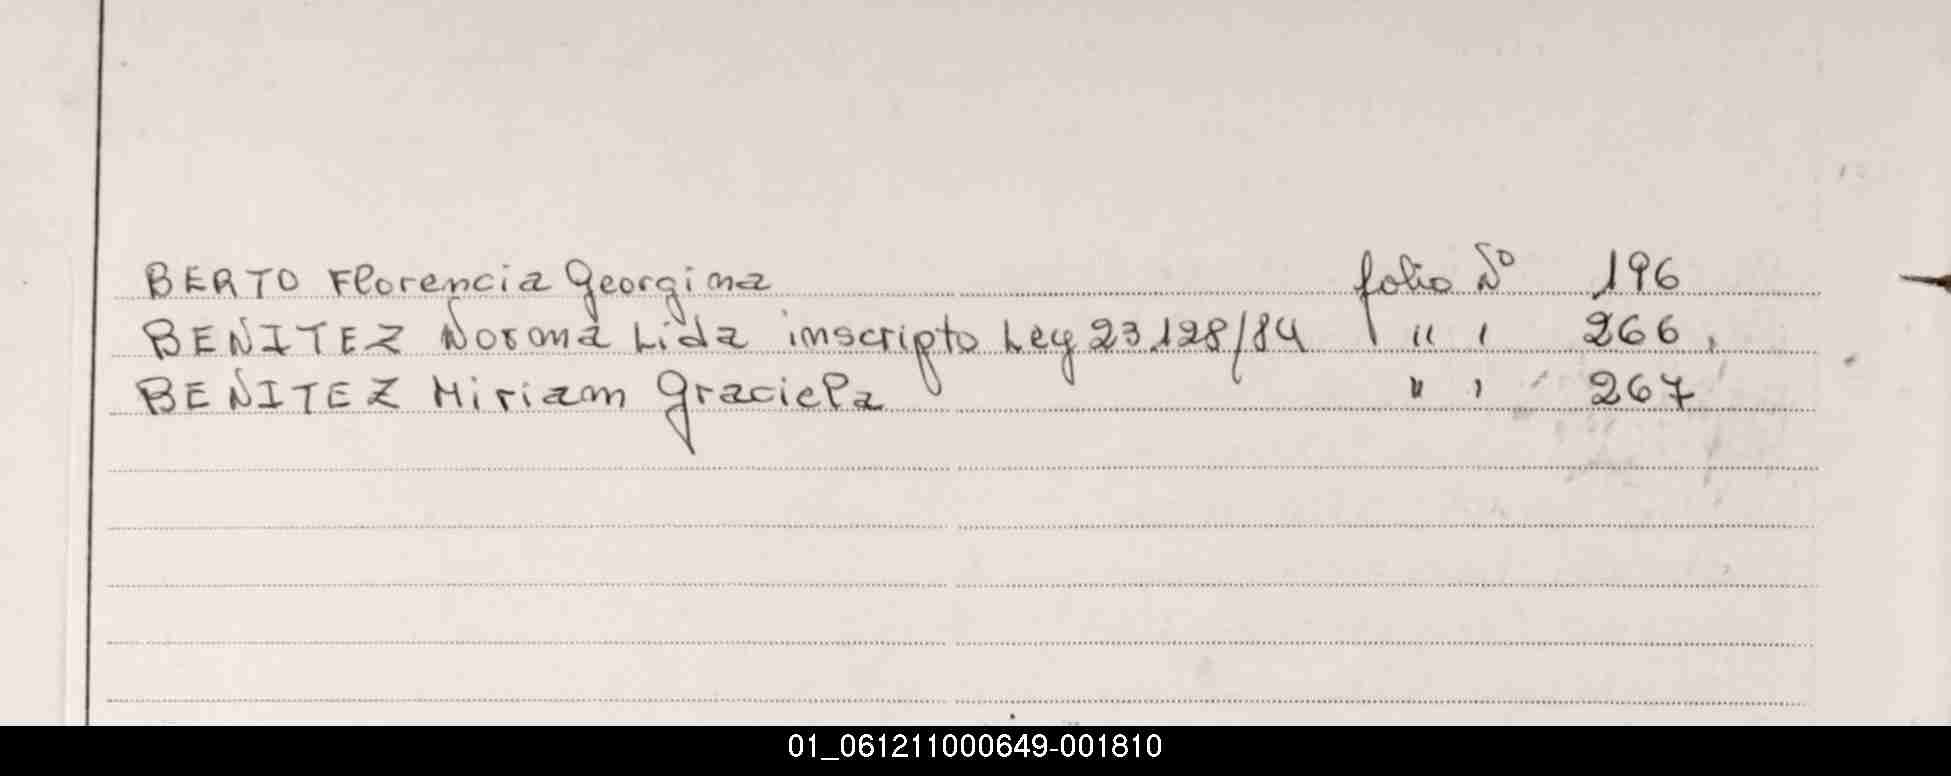 BERTO Florencia Georgina folio Nº 196
BENITEZ Norma Lida inscripto Ley 23.128/84 " " 266.
BENITEZ Miriam Graciela " " 267
01_061211000649-001810